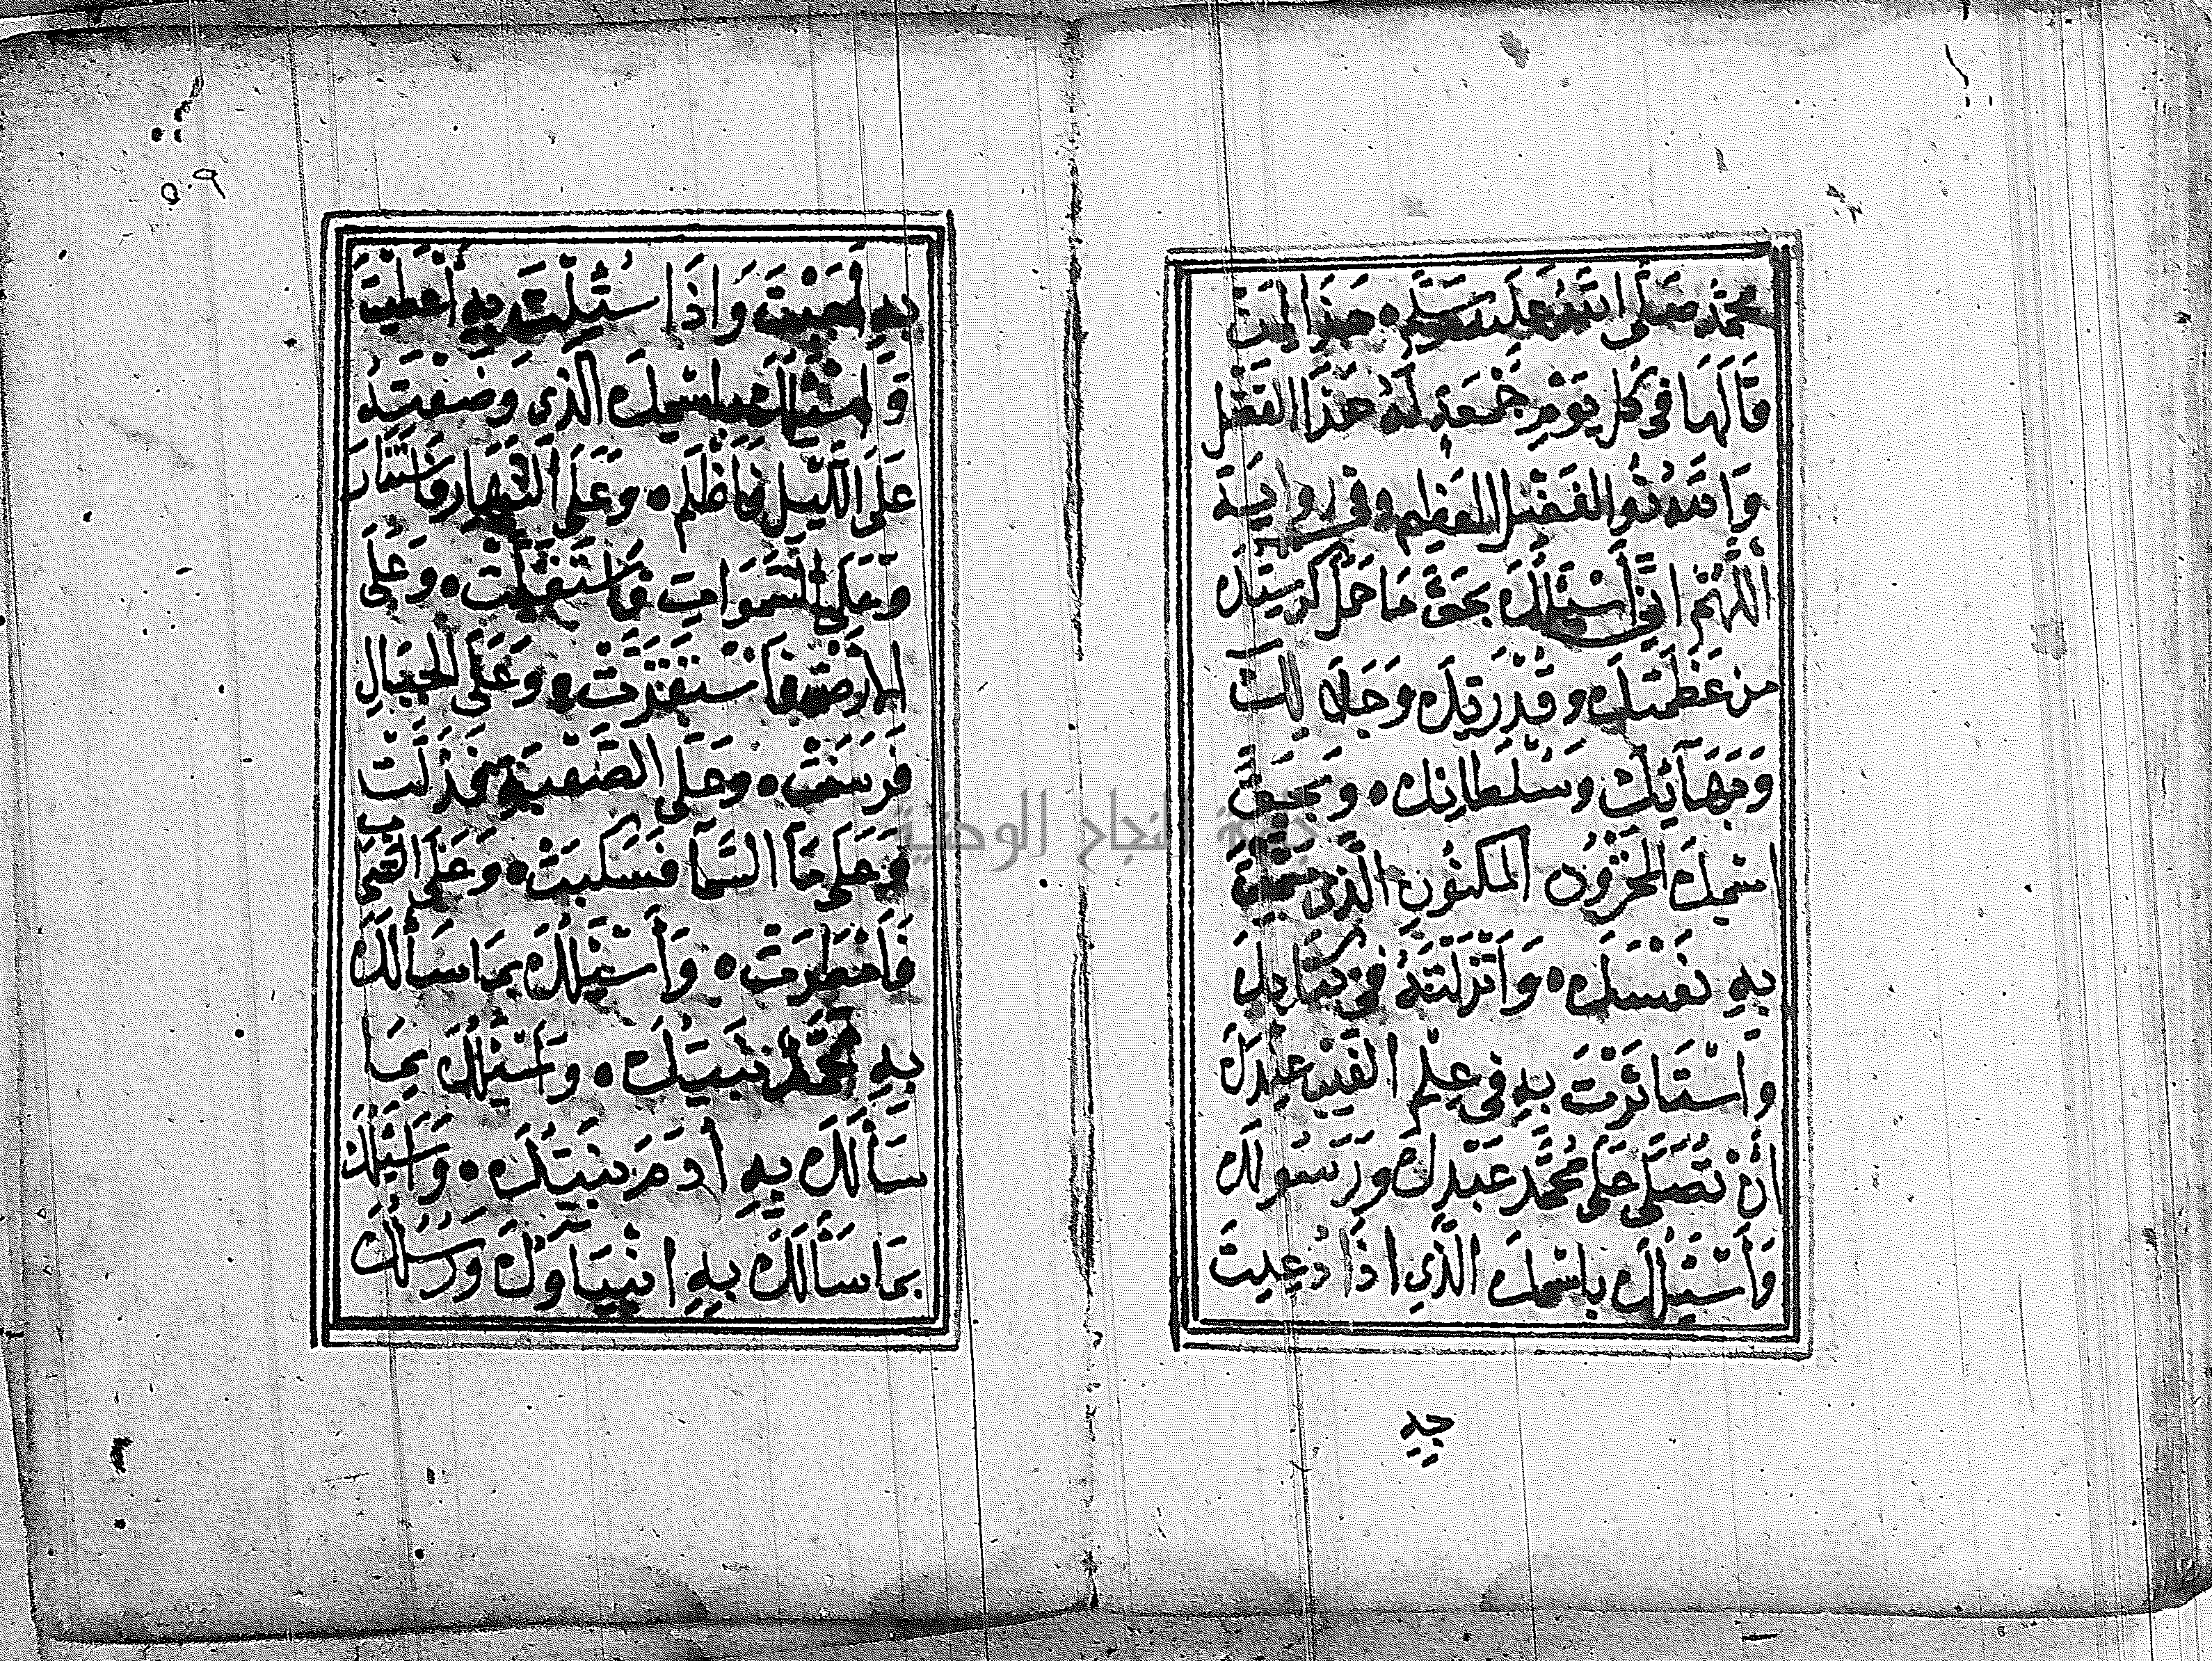 محمد صلى الله عليه وسلم هذا لمن
قَالَهَا في كل يَوْمِ جُمْعَةٍ لَهُ هَذَا الفضل
وَاللهُ ذُو الفَضْلِ العَظِيمِ وفي رواية
اَللَّهُمَّ اِنِّي اَسْئَلُكَ بِحَقِّ مَا حَمَلَ كُرْسِيُّكَ
مِنْ عَظَمَتِكَ وَقُدْرَتِكَ وَجَلَالِكَ
وَبَهَآئِكَ وَسُلْطَانِكَ وَبِحَقِّ
اسْمِكَ المَخْزُونِ المَكْنُونِ الَّذِي سَمَّيْتَ
بِهِ نَفْسَكَ وَاَنْزَلْتَهُ فِي كِتَابِكَ
وَاسْتَاثَرْتَ بِهِ فِي عِلْمِ الغَيْبِ عِنْدَكَ
اَنْ تُصَلِّيَ عَلَى مُحَمَّدٍ عَبْدِكَ وَرَسُولِكَ
وَاَسْئَلُكَ بِاسْمِكَ الَّذِي اِذَا دُعِيتَ
بِهِ
بِهِ اَجَبْتَ وَاِذَا سُئِلْتَ بِهِ اَعْطَيْتَ
وَاَسْئَلُكَ بِاسْمِكَ الَّذِي وَضَعْتَهُ
عَلَى اللَّيْلِ فَاَظْلَمَ وَعَلَى النَّهَارِ فَاسْتَنَارَ
وَعَلَى السَّمَوَاتِ فَاسْتَقَلَّتْ وَعَلَى
الارْضِ فَاسْتَقَرَّتْ وَعَلَى الجِبَالِ
فَرَسَتْ وَعَلَى الصَّعْبَةِ فَذَلَّتْ
وَعَلَى مَآ السَّمَا فَسَكَبَتْ وَعَلَى السَّحَابِ
فَاَمْطَرَتْ وَاَسْئَلُكَ بِمَا سَاَلَكَ
بِهِ مُحَمَّدٌ نَبِيُّكَ وَاَسْئَلُكَ بِمَا
سَاَلَكَ بِهِ اَدَمَ نَبِيُّكَ وَاَسْئَلُكَ
بِمَا سَاَلَكَ بِهِ اَنْبِيَاوُكَ وَرُسُلُكَ
٥٠٩
جامعة النجاح الوطنية